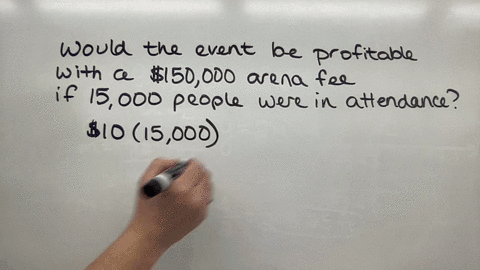 Would the event be profitable
with a $150,000 arena fee
if 15,000 people were in attendance?
$10 (15,000)